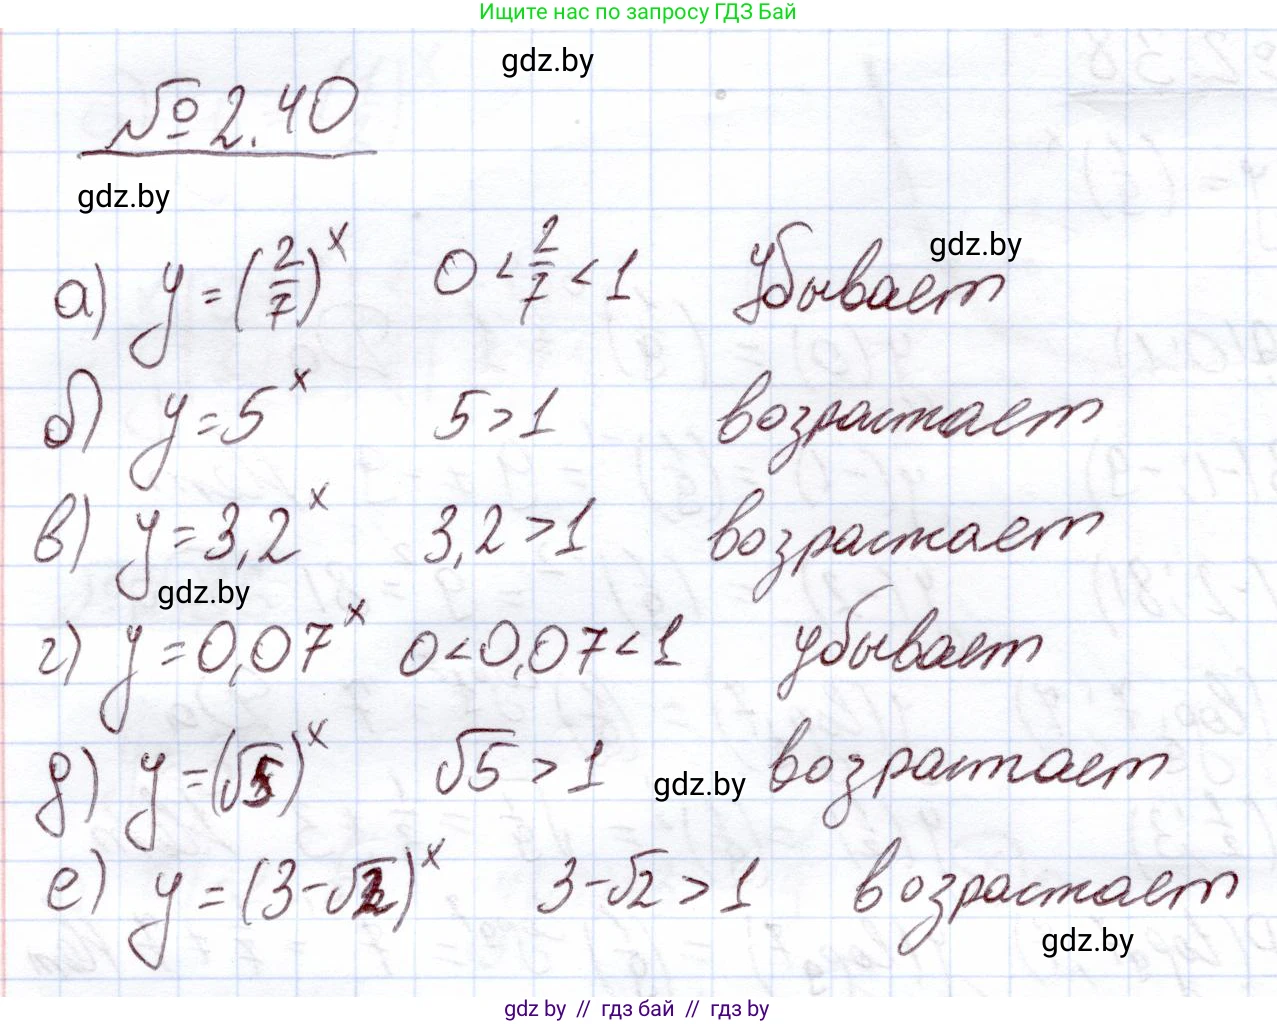 Ищите нас по запросу ГДЗ Бай
gdz.by
№ 2.40
gdz.by
а) y = (2/7)^x 0 < 2/7 < 1 убывает
gdz.by
б) y = 5^x 5 > 1 возрастает
в) y = 3,2^x 3,2 > 1 возрастает
gdz.by
г) y = 0,07^x 0 < 0,07 < 1 убывает
д) y = (√5)^x √5 > 1 возрастает
gdz.by
е) y = (3-√2)^x 3-√2 > 1 возрастает
gdz.by
gdz by // гдз бай // гдз by